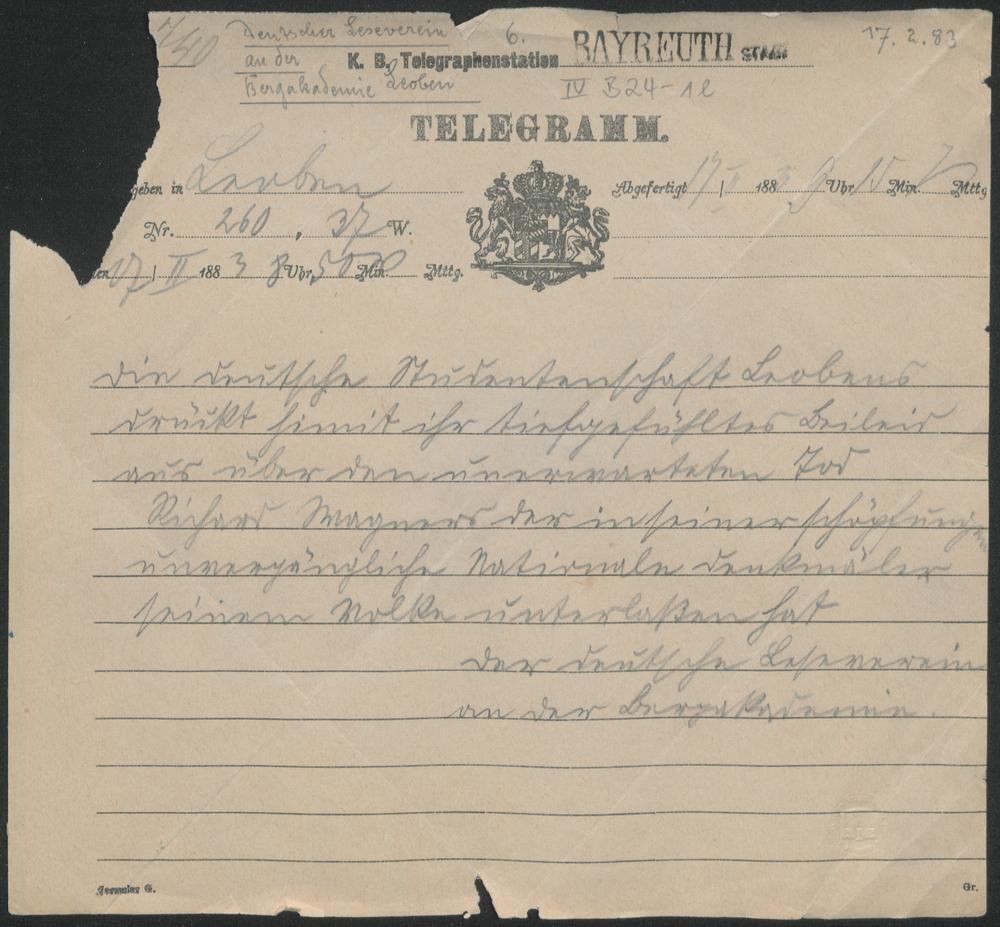 Deutscher Leseverein
an der
Bergakademie Leoben
6.
17. 2. 83
K. B. Telegraphenstation BAYREUTH STADT
IV B24-12
TELEGRAMM.
geben in Leoben
Abgefertigt 17/II 1883 9 Uhr 15 Min. Mttg
Nr. 260, 37 W.
en 17/II 1883 8 Uhr 50 Min. Mttg.
die deutsche Studentenschaft Leobens
drückt himit ihr tiefgefühltes Beileid
aus über den unerwarteten Tod
Richard Wagners der in seiner schöpfungen
unvergängliche Nationale denkmäler
seinem Volke unterlaßen hat
der deutsche Leseverein
an der Bergakademie.
Formular G.
Gr.